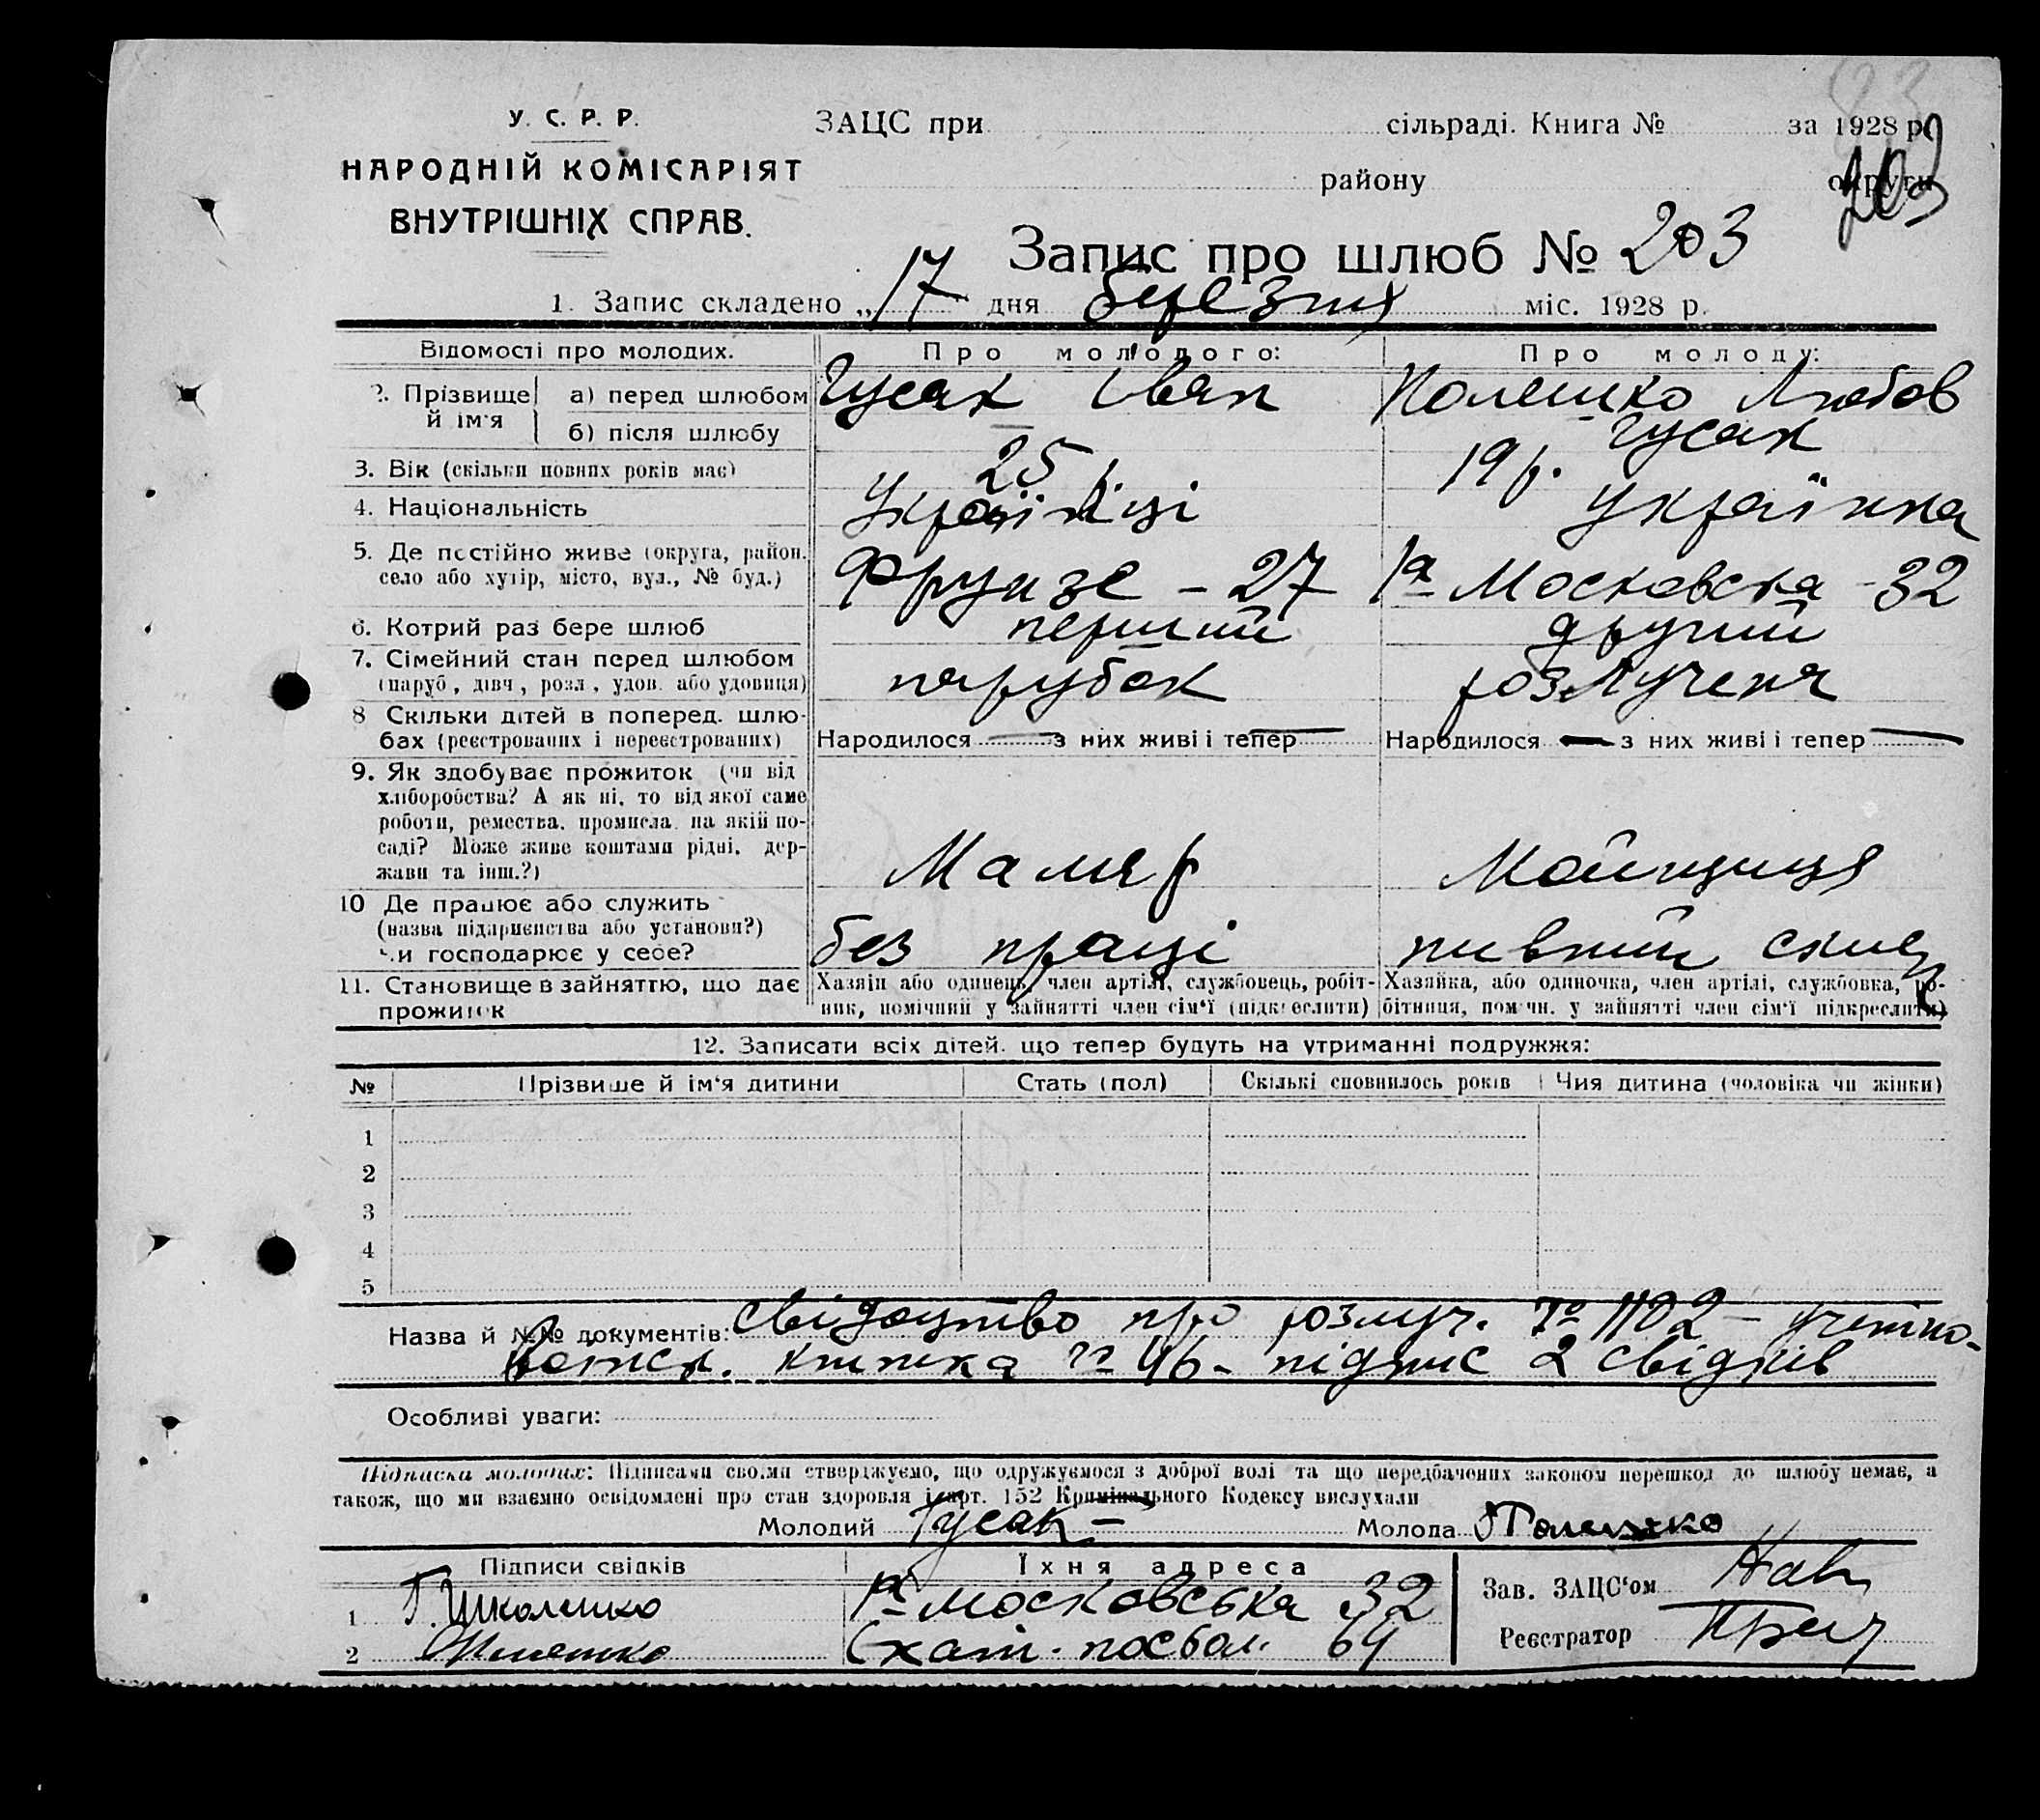 У. С. Р. Р.
НАРОДНІЙ КОМІСАРІЯТ
ВНУТРІШНІХ СПРАВ.
ЗАЦС при сільраді. Книга № за 1928 р.
району округи
203
Запис про шлюб № 203
1. Запис складено „17" дня березня міс. 1928 р.
Відомості про молодих. Про молодого: Про молоду:
2. Прізвище й ім'я а) перед шлюбом Гусак Іван Полешко Любов
б) після шлюбу — Гусак
3. Вік (скільки повних років має) 25 р. 19 р.
4. Національність українка
5. Де постійно живе (округа, район. Фрунзе - 27 1а Московська - 32
село або хутір, місто, вул., № буд.)
6. Котрий раз бере шлюб перший другий
7. Сімейний стан перед шлюбом парубок розлучена
(паруб, дівч, розл, удов. або удовиця)
8 Скільки дітей в поперед. шлю-
бах (реєстрованих і нереєстрованих) Народилося — з них живі і тепер — Народилося — з них живі і тепер —
9. Як здобуває прожиток (чи від
хліборобства? А як ні, то від якої саме
роботи, ремества, промисла, на якій по-
саді? Може живе коштами рідні, дер-
жави та інш.?) Маляр Мойщиця
10 Де працює або служить
(назва підприємства або установи?)
чи господарює у себе? без праці пивний склад
11. Становище в зайняттю, що дає Хазяїн або одинець, член артілі, службовець, робіт- Хазяйка, або одиночка, член артілі, службовка, ро-
прожиток ник, помічний у зайнятті член сім'ї (підкреслити) бітниця, помічн. у зайнятті член сім'ї підкреслити)
12. Записати всіх дітей, що тепер будуть на утриманні подружжя:
№ Прізвище й ім'я дитини Стать (пол) Скількі сповнилось років Чия дитина (чоловіка чи жінки)
1
2
3
4
5
Назва й №№ документів: свідоцтво про розлуч. № 1102 -
книжка № 46 - підпис 2 свідків
Особливі уваги:
Підписка молодих: Підписами своїми стверджуємо, що одружуємося з доброї волі та що передбачених законом перешкод до шлюбу немає, а
також, що ми взаємно освідомлені про стан здоровля і арт. 152 Кримінального Кодексу вислухали
Молодий Гусак Молода Полешко
Підписи свідків Їхня адреса Зав. ЗАЦС'ом
1 1а Московська 32
2 64 Реєстратор